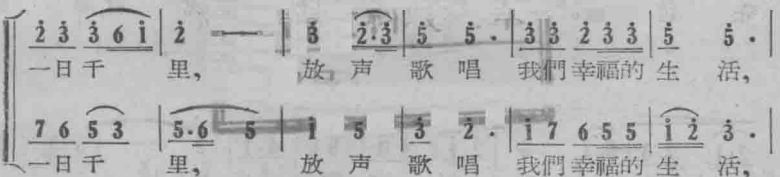 2 3 3 6 1 | 2 — | 3 2·3 | 5 5· | 3 3 2 3 3 | 5 5· |
一日千 里, 放 声 歌 唱 我們 幸福的 生 活,
7 6 5 3 | 5·6 5 | 1 5 | 3 2· | 1 7 6 5 5 | 1 2 3· |
一日千 里, 放 声 歌 唱 我們 幸福的 生 活,